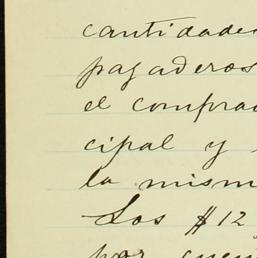 cantidades
pagaderos
el comprad
cipal y
la mism
Los $12
por cuen